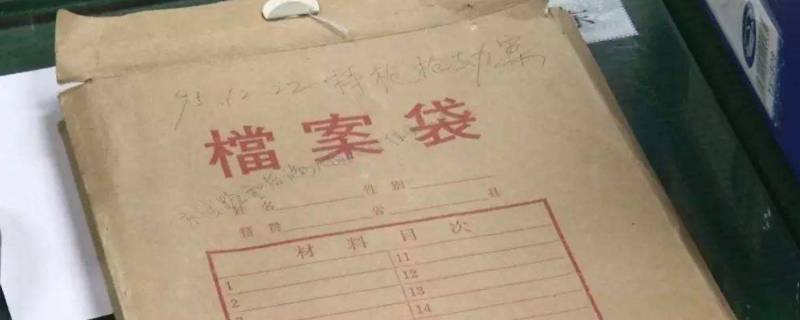 95.12.22持枪抢劫案
檔案袋
姓名 性别
籍贯 省 县
材料目次
1 11
2 12
13
14